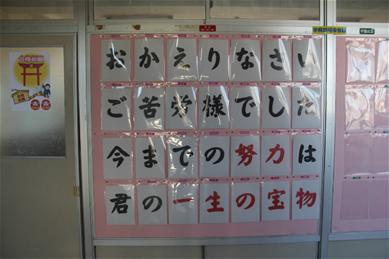 おかえりなさい
ご苦労様でした
今までの努力は
君の一生の宝物